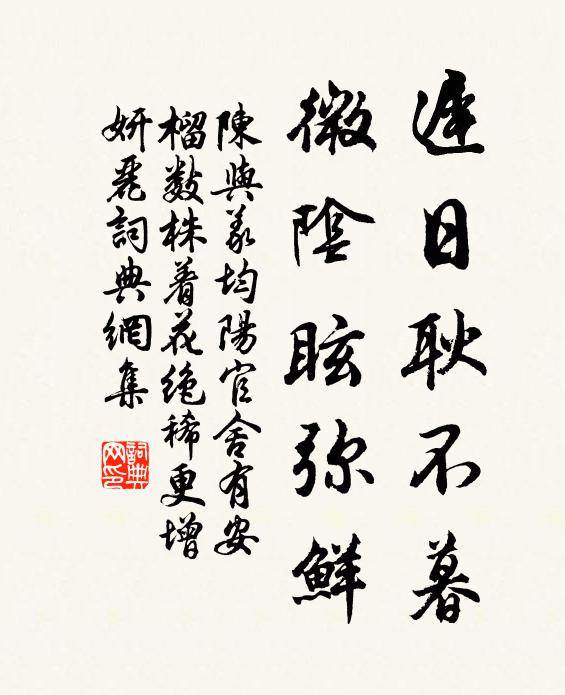 遲日耿不暮
微陰眩弥鮮
陳與義均陽官舍有安
榴数株着花绝稀更增
妍麗詞典網集
詞典网印